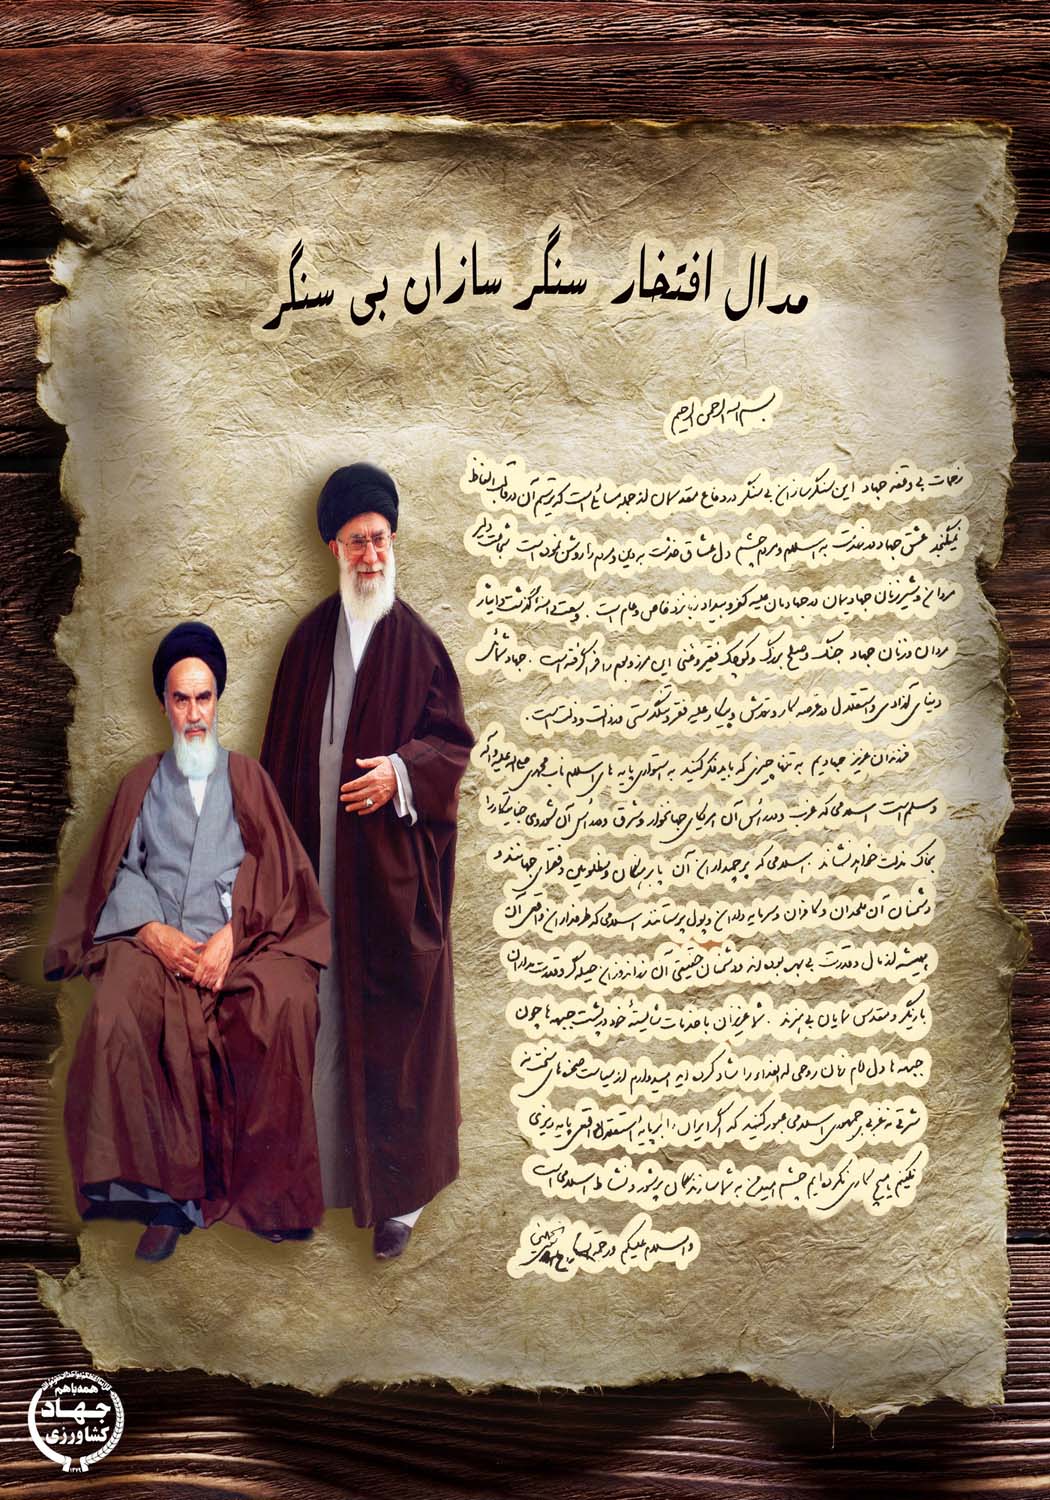 مدال افتخار سنگر سازان بی سنگر
بسم الله الرحمن الرحیم
زحمات بی وقفه جهاد این سنگرسازان بی سنگر در دفاع مقدسمان از جمله مسائلی است که ترسیم آن در قالب الفاظ
نمیگنجد عشق جهاد در خدمت به اسلام و مردم چشم دل عشاق خدمت به دین و مردم را روشن نموده است شجاعت دلیر
مردان و شیرزنان جهادیمان در جهادمان علیه کفر و بیداد زبانزد خاص و عام است. وسعت گذشت و ایثار
مردان و زنان جهاد جنگ و صلح بزرگ و کوچک فقیر و غنی این مرز و بوم را فرا گرفته است. جهاد
دنیای آزادی و استقلال در عرصه کار و تلاش و پیکار علیه فقر و تنگدستی و رذالت و ذلت است.
فرزندان عزیز جهادیم به تنها چیزی که باید فکر کنید به استواری پایه های اسلام ناب محمدی صلی الله علیه و آله
و سلم است اسلامی که غرب و در رأس آن امریکای جهانخوار و شرق و در رأس آن شوروی جنایتکار را
بخاک مذلت خواهد نشاند. اسلامی که پرچمداران آن پابرهنگان و مظلومین و فقرای جهانند و
دشمنان آن ملحدان و کافران و سرمایه داران و پول پرستانند اسلامی که طرفداران واقعی آن
همیشه از مال و قدرت بی بهره بوده اند و دشمنان حقیقی آن زراندوزان حیله گر و قدرت مداران
بازیگر و مقدس نمایان بی هنرند. شما عزیزان با خدمات شایسته خود در پشت جبهه ها چون
جبهه ها دل امام زمان روحی له الفداء را شاد کرده اید امیدوارم از سیاست صخره های سخت نه
شرقی نه غربی جمهوری اسلامی عبور کنید که اگر ایران را بر پایه استقلال واقعی پایه ریزی
نکنیم هیچ کاری نکرده ایم چشم امید من به شما سازندگان پرشور و نشاط اسلامی است
والسلام علیکم و رحمة الله روح الله الموسوی الخمینی
همه با هم
جهاد
کشاورزی